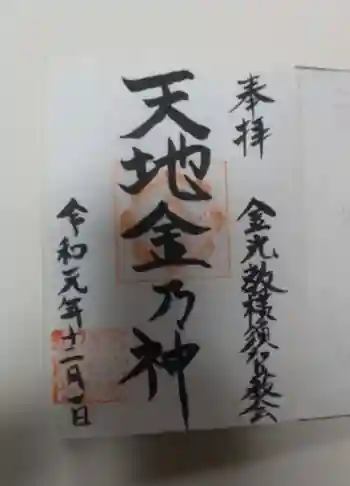 奉拝
金光教様須賀教会
天地金乃神
令和元年十二月一日